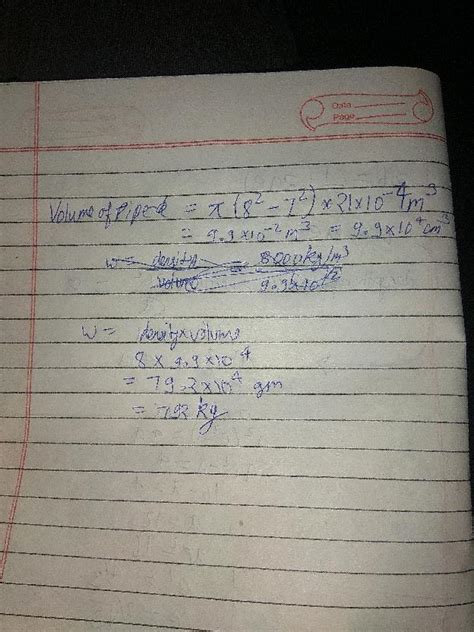 Date
Page
Volume of Pipe = π (8² - 7²) × 21×10⁻⁴ m³
= 9.9×10⁻² m³ = 9.9×10⁴ cm³
w = density = 8000kg/m³
volume 9.9×10⁻²
w = density×volume
8 × 9.9×10⁴
= 79.2×10⁴ gm
= 792 kg